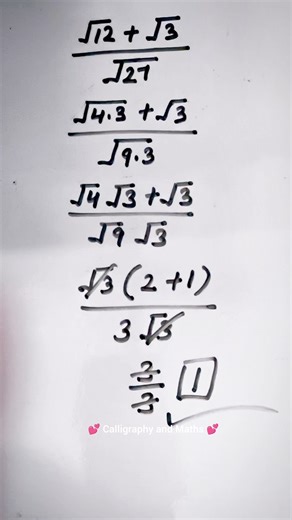 √12 + √3
√27
√4·3 + √3
√9·3
√4 √3 + √3
√9 √3
√3 (2+1)
3 √3
3
3
1
💕 Calligraphy and Maths 💕